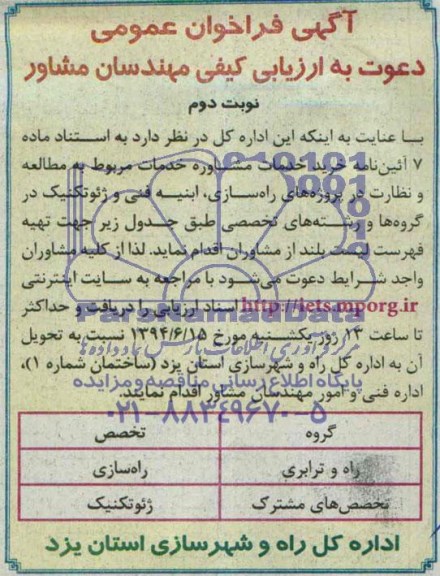 آگهی فراخوان عمومی
دعوت به ارزیابی کیفی مهندسان مشاور
نوبت دوم
با عنایت به اینکه این اداره کل در نظر دارد به استناد ماده
۷ آئین‌نامه خرید خدمات مشاوره خدمات مربوط به مطالعه
و نظارت در پروژه‌های راه‌سازی، ابنیه فنی و ژئوتکنیک در
گروه‌ها و رشته‌های تخصصی طبق جدول زیر جهت تهیه
فهرست لیست بلند از مشاوران اقدام نماید. لذا از کلیه مشاوران
واجد شرایط دعوت می‌شود با مراجعه به سایت اینترنتی
http://iets.mporg.ir اسناد ارزیابی را دریافت و حداکثر
تا ساعت ۱۳ روز یکشنبه مورخ ۱۳۹۴/۶/۱۵ نسبت به تحویل
آن به اداره کل راه و شهرسازی استان یزد (ساختمان شماره ۱)،
اداره فنی و امور مهندسان مشاور اقدام نمایند.
پایگاه اطلاع رسانی مناقصه و مزایده
۰۲۱-۸۸۳۴۹۶۷۰-۵
گروه تخصص
راه و ترابری راه‌سازی
تخصص‌های مشترک ژئوتکنیک
اداره کل راه و شهرسازی استان یزد